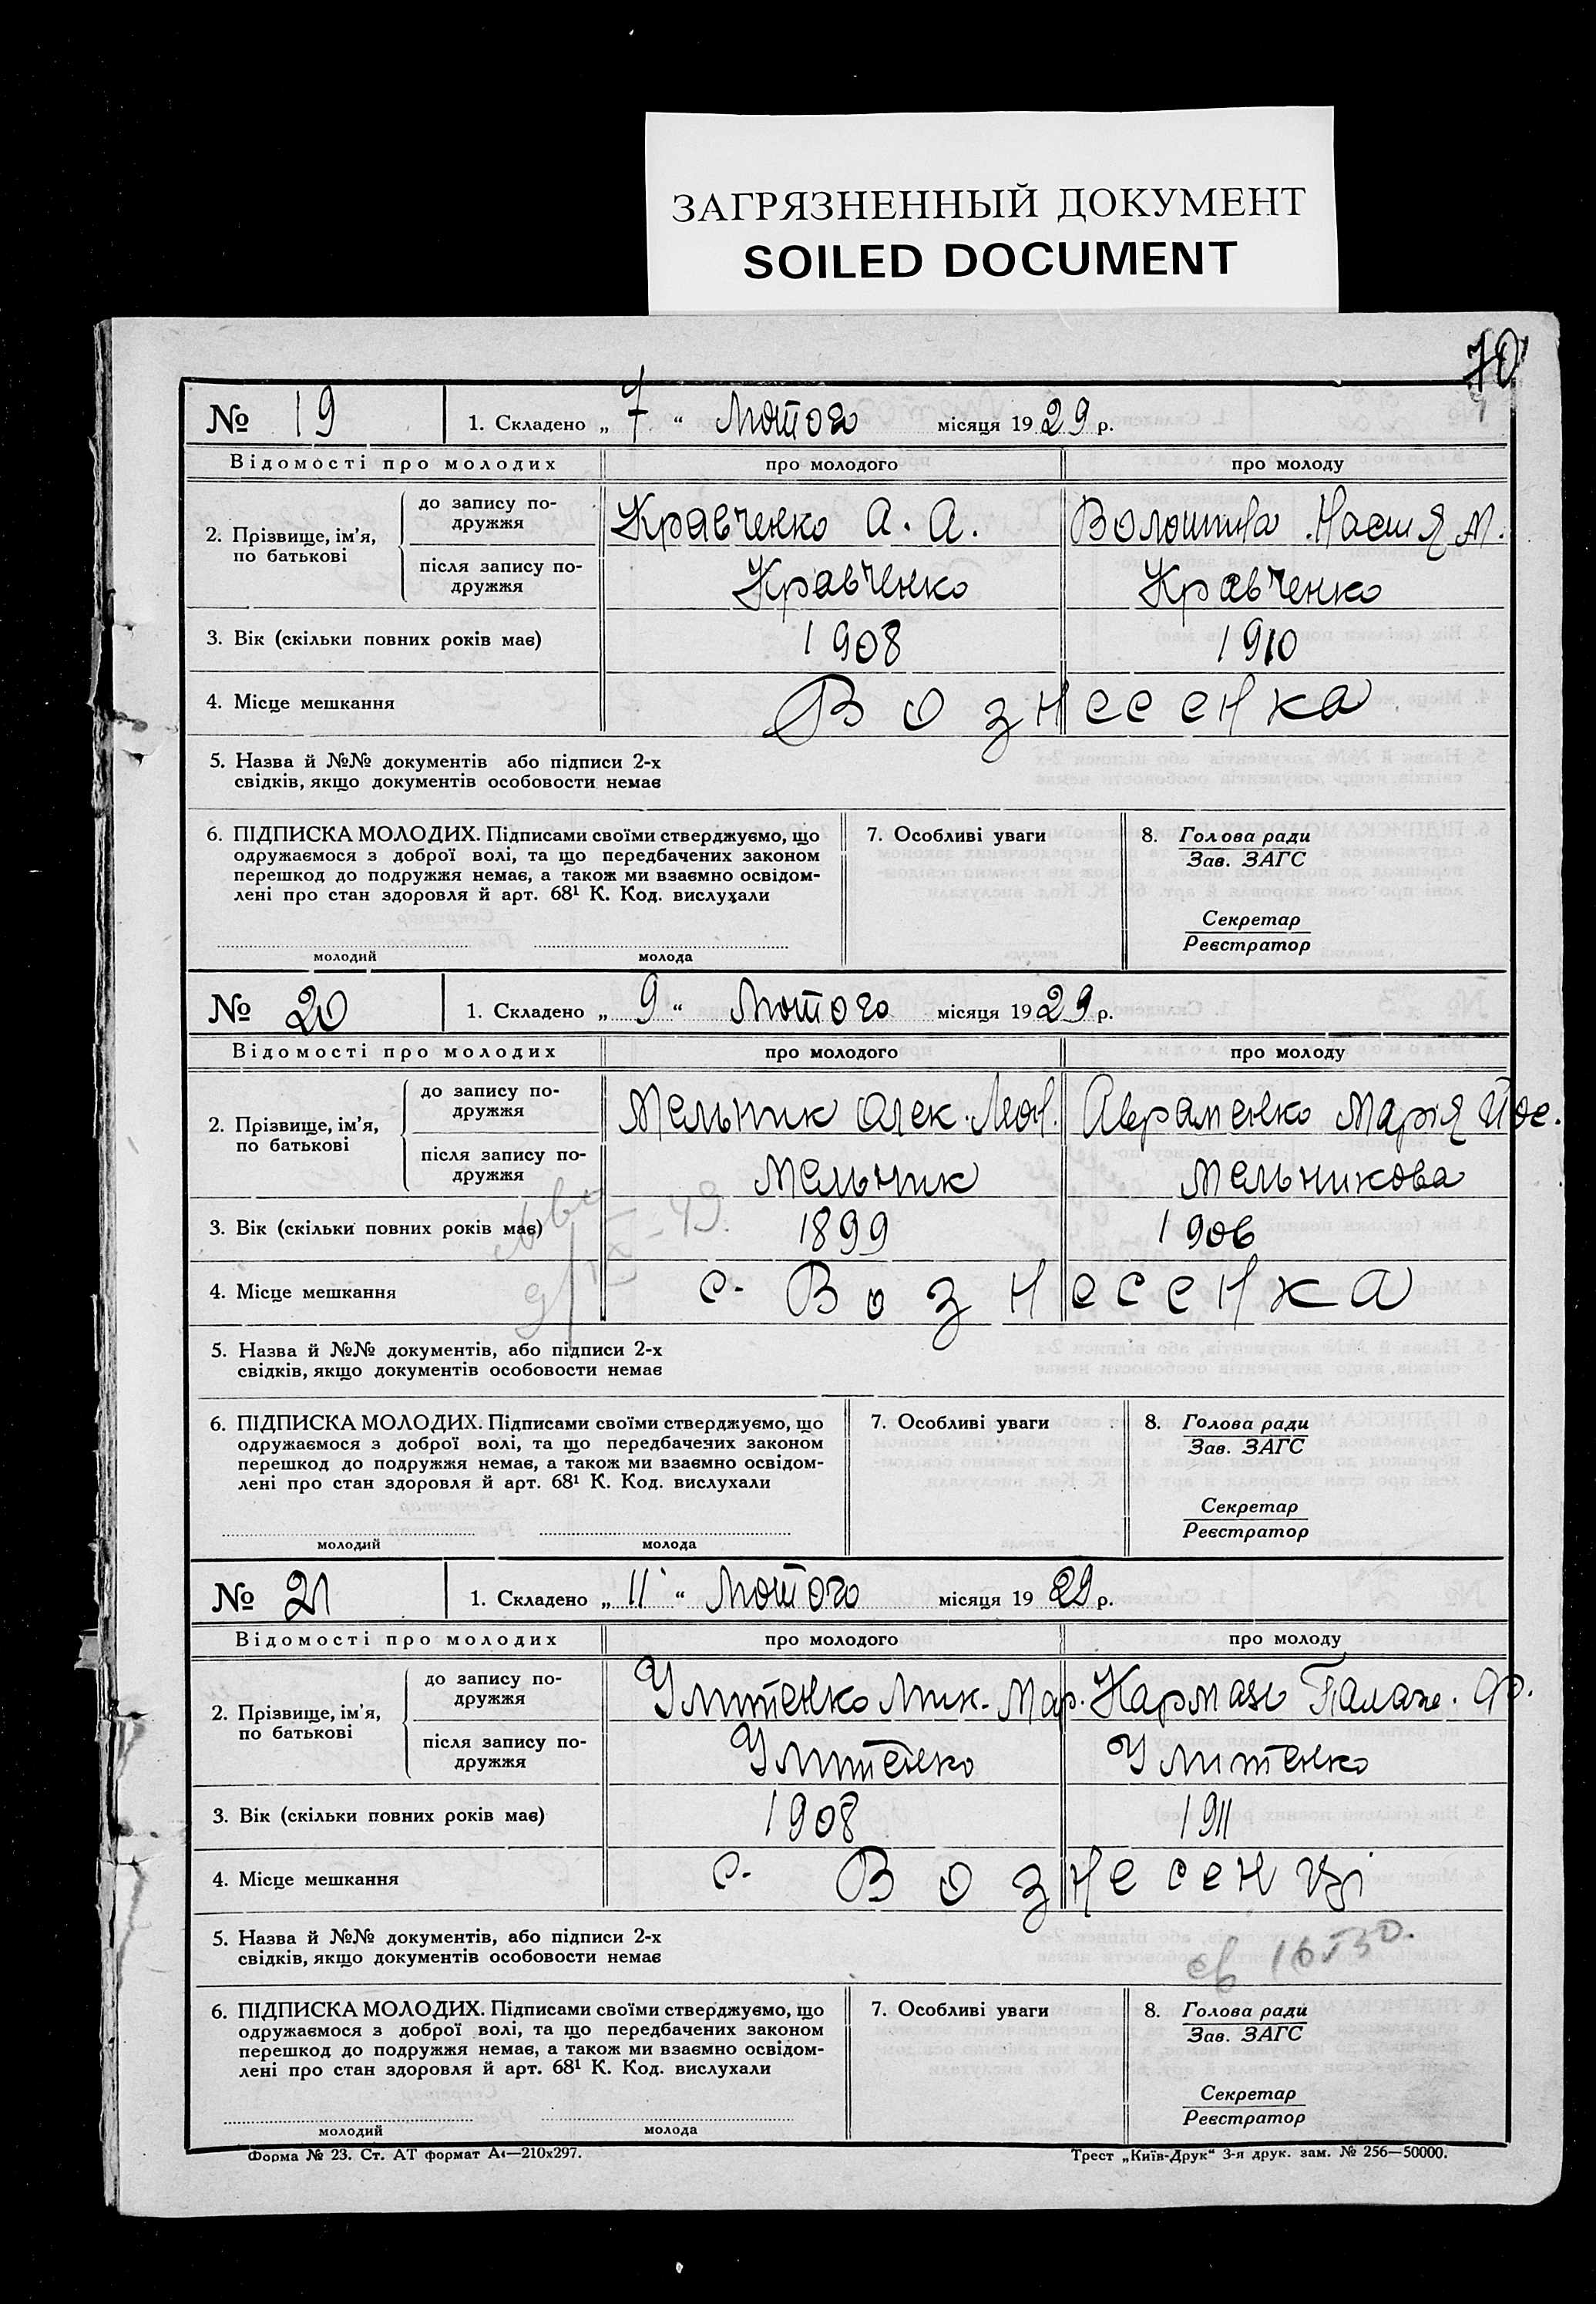 ЗАГРЯЗНЕННЫЙ ДОКУМЕНТ
SOILED DOCUMENT
70
№ 19 1. Складено „ 7 “ Лютого місяця 1929 р.
Відомості про молодих про молодого про молоду
2. Прізвище, ім'я, по батькові
до запису по-
дружжя
Кравченко А. А. Волошина Настя М.
після запису по-
дружжя
Кравченко Кравченко
3. Вік (скільки повних років має) 1908 1910
4. Місце мешкання Вознесенка
5. Назва й №№ документів або підписи 2-х
свідків, якщо документів особовости немає
6. ПІДПИСКА МОЛОДИХ. Підписами своїми стверджуємо, що
одружаємося з доброї волі, та що передбачених законом
перешкод до подружжя немає, а також ми взаємно освідом-
лені про стан здоровля й арт. 68¹ К. Код. вислухали
молодий молода
7. Особливі уваги
8. Голова ради
Зав. ЗАГС
Секретар
Реєстратор
№ 20 1. Складено „ 9 “ Лютого місяця 1929 р.
Відомості про молодих про молодого про молоду
2. Прізвище, ім'я,
по батькові
до запису по-
дружжя
Мельник Олек. Леон. Авраменко Марія Йос.
після запису по-
дружжя
Мельник Мельникова
3. Вік (скільки повних років має) 1899 1906
4. Місце мешкання с. Вознесенка
5. Назва й №№ документів, або підписи 2-х
свідків, якщо документів особовости немає
6. ПІДПИСКА МОЛОДИХ. Підписами своїми стверджуємо, що
одружаємося з доброї волі, та що передбачених законом
перешкод до подружжя немає, а також ми взаємно освідом-
лені про стан здоровля й арт. 68¹ К. Код. вислухали
молодий молода
7. Особливі уваги
8. Голова ради
Зав. ЗАГС
Секретар
Реєстратор
№ 21 1. Складено „ 11 “ Лютого місяця 1929 р.
Відомості про молодих про молодого про молоду
2. Прізвище, ім'я,
по батькові
до запису по-
дружжя
Улитенко Мик. Мар. Кармазь Палаж. Ф.
після запису по-
дружжя
Улитенко Улитенко
3. Вік (скільки повних років має) 1908 1911
4. Місце мешкання с. Вознесенці
5. Назва й №№ документів, або підписи 2-х
свідків, якщо документів особовости немає
6. ПІДПИСКА МОЛОДИХ. Підписами своїми стверджуємо, що
одружаємося з доброї волі, та що передбачених законом
перешкод до подружжя немає, а також ми взаємно освідом-
лені про стан здоровля й арт. 68¹ К. Код. вислухали
молодий молода
7. Особливі уваги
8. Голова ради
Зав. ЗАГС
Секретар
Реєстратор
Форма № 23. Ст. АТ формат А4—210х297. Трест „Київ-Друк“ 3-я друк. зам. № 256—50000.